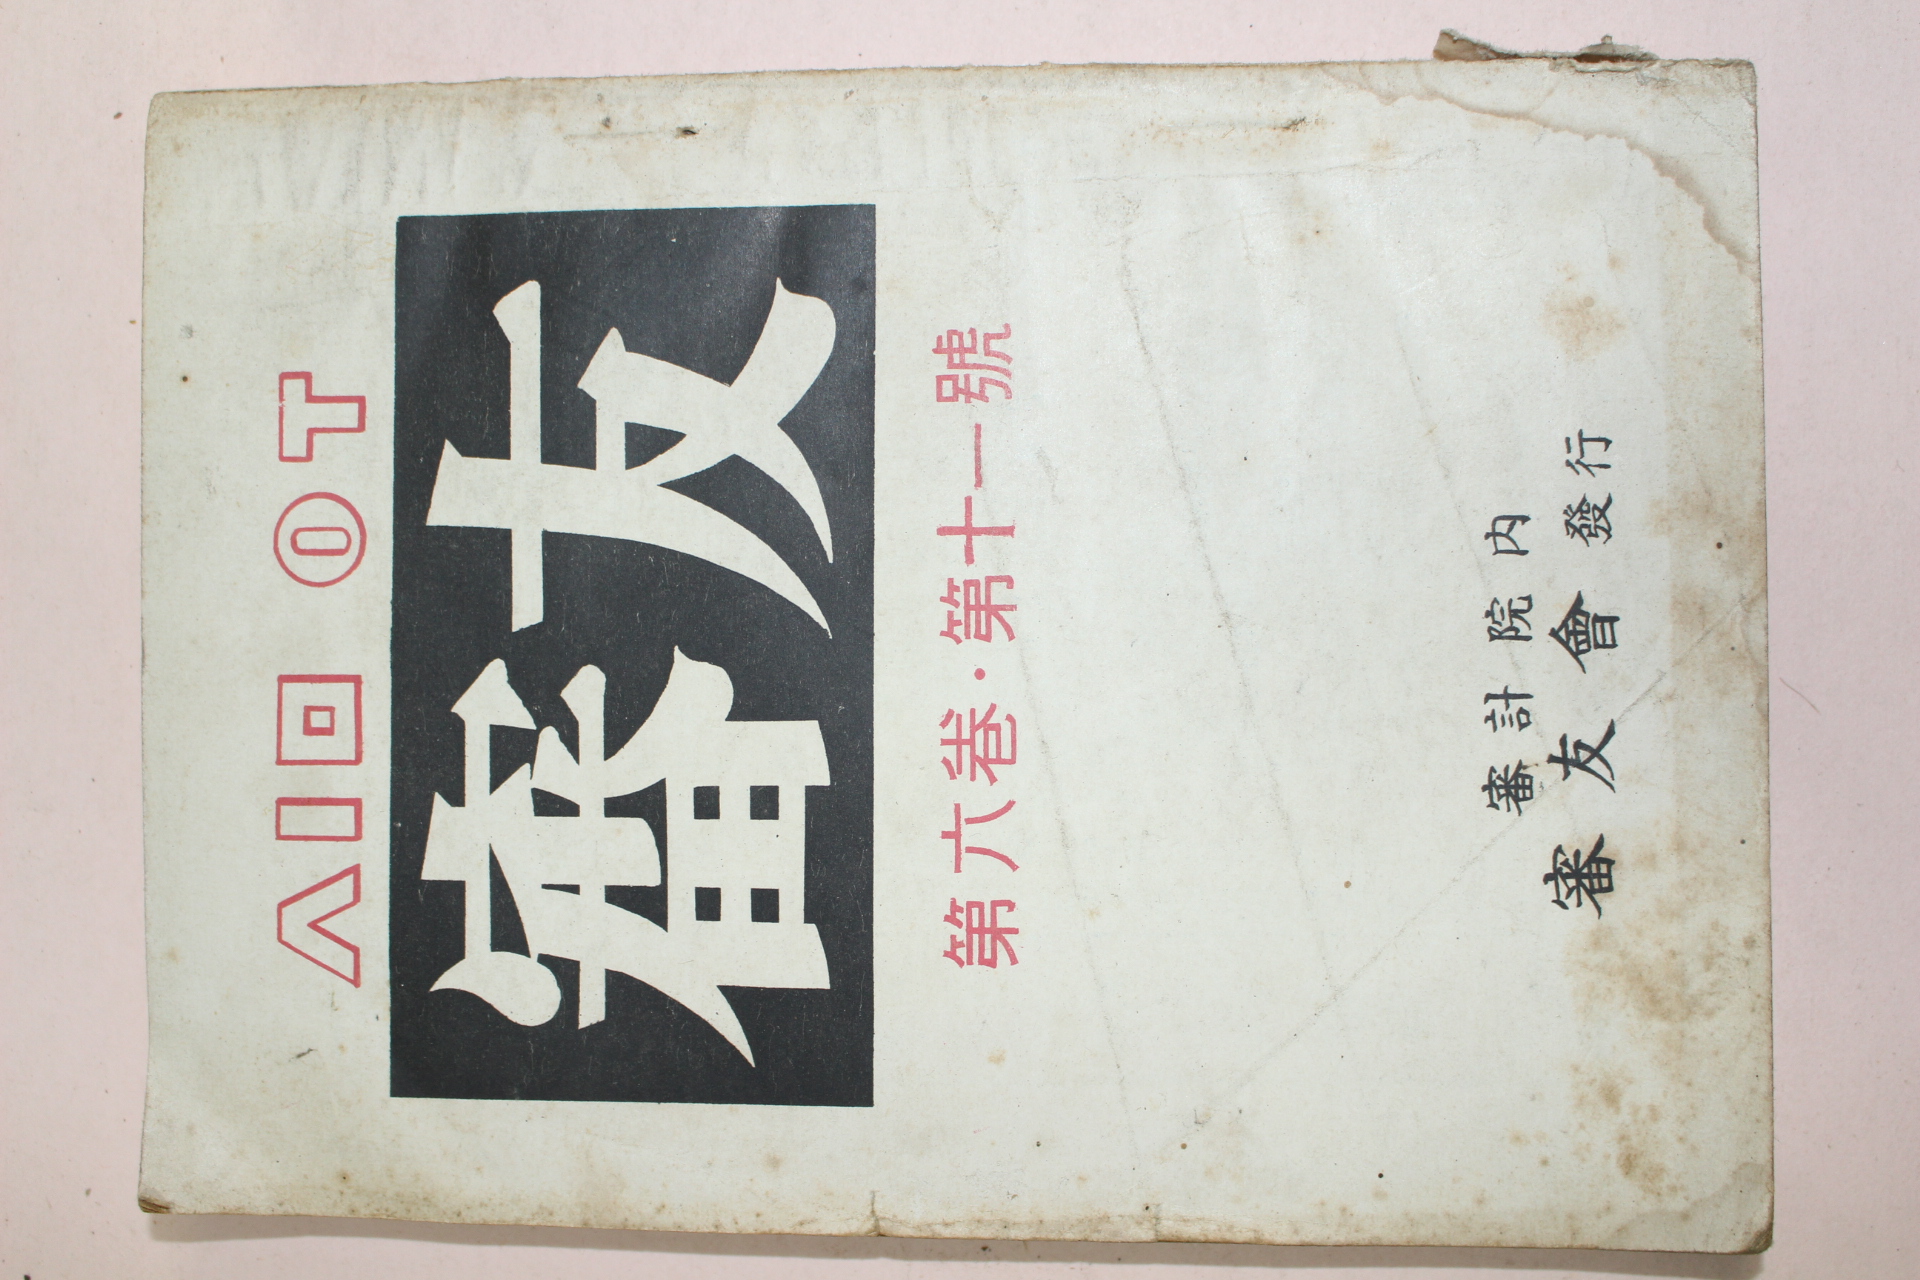 ㅅㅣㅁ ㅇㅜ
審友
第六卷·第十一號
審計院內
審友會 發行